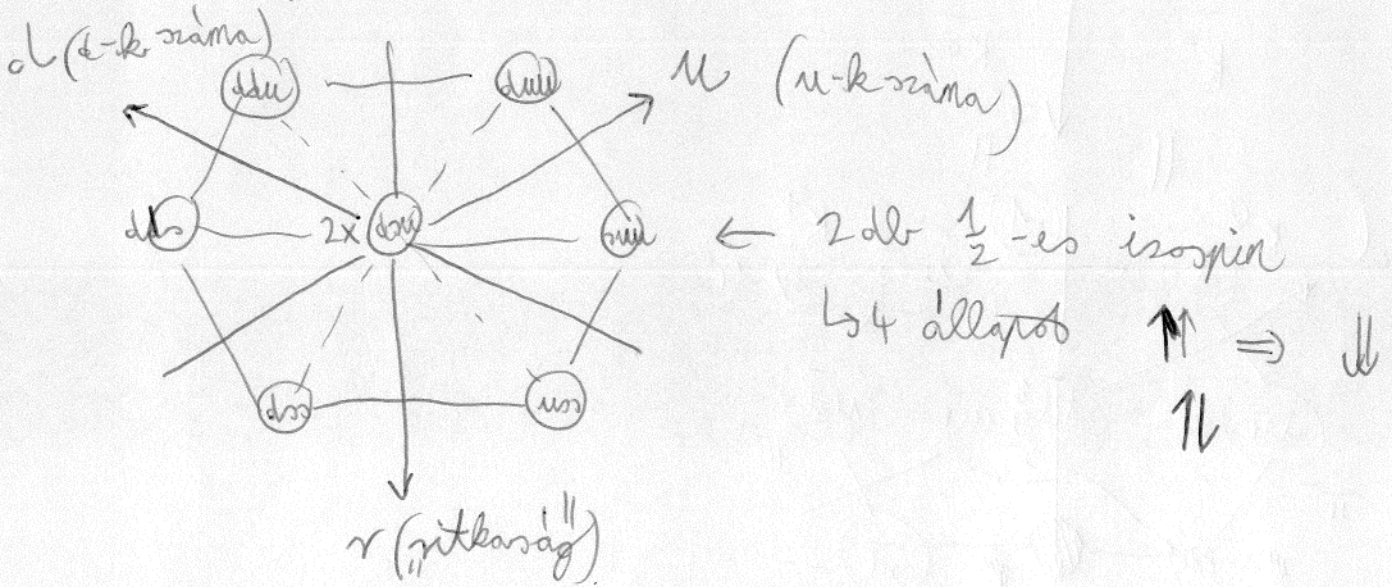 d (d-k száma)
ddu
duu
u (u-k száma)
dds
2x dsu
suu
← 2 db 1/2-es izospin
↳ 4 állapot ↑↑ ⇒ ↓↓
↑↓
dss
uss
r („ritkaság")